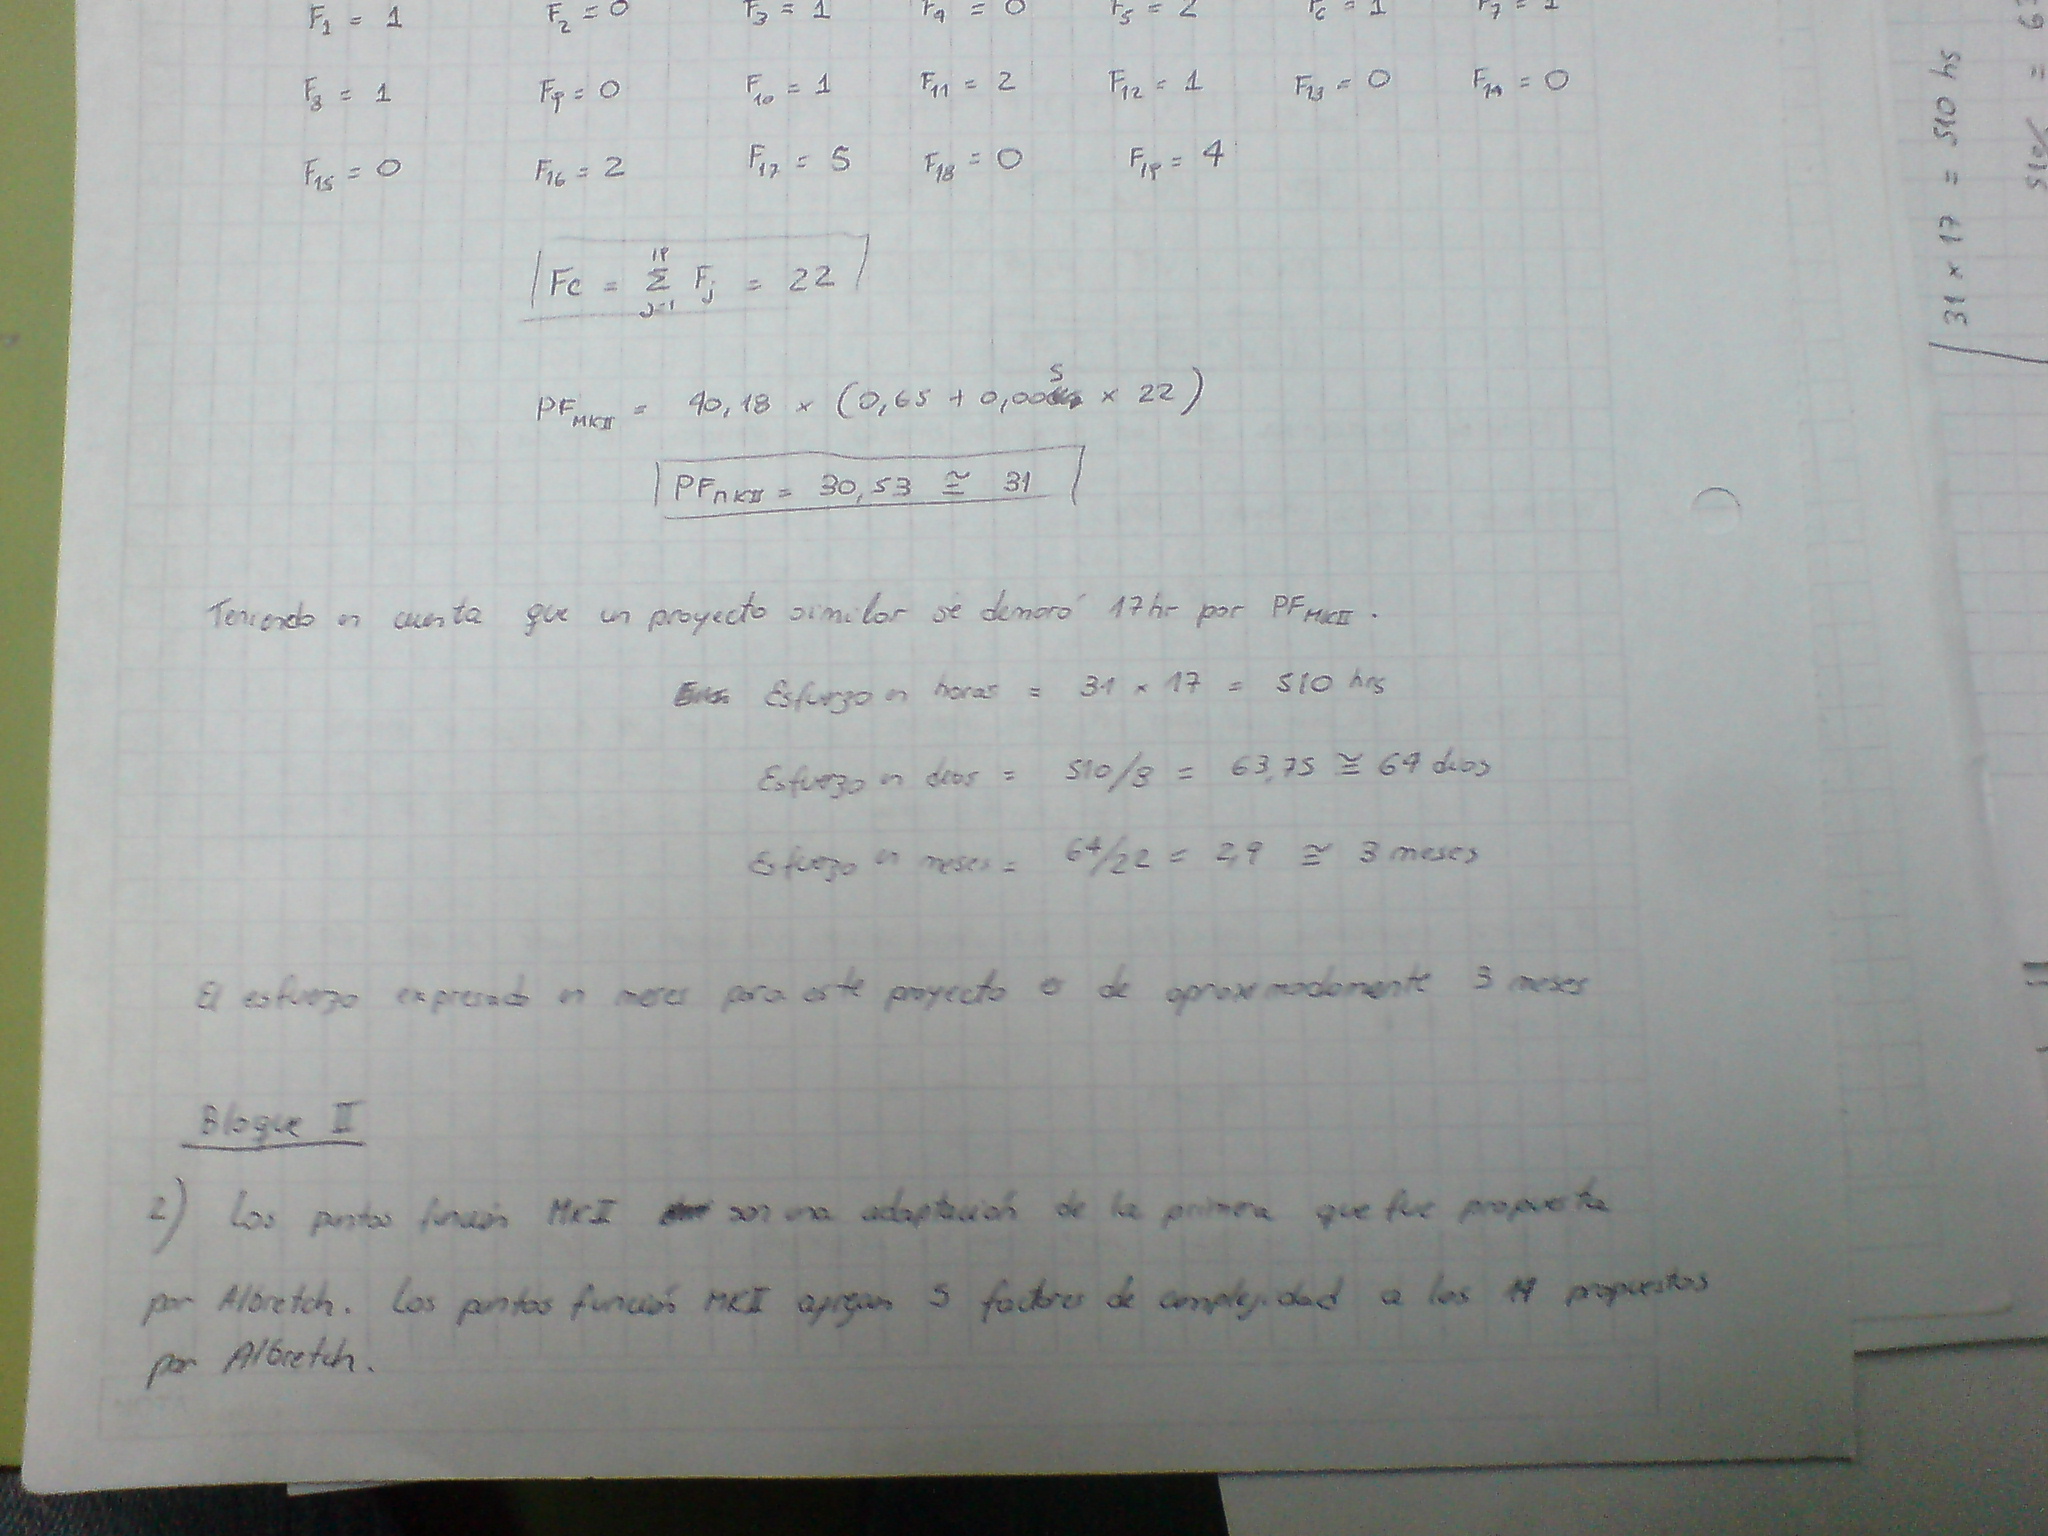 F1 = 1 F2 = 0 F3 = 1 F4 = 0 F5 = 2 F6 = 1 F7 = 1
F8 = 1 F9 = 0 F10 = 1 F11 = 2 F12 = 1 F13 = 0 F14 = 0
F15 = 0 F16 = 2 F17 = 5 F18 = 0 F19 = 4
Fc = 19 Σ j=1 Fj = 22
PFMKII = 40,18 × (0,65 + 0,005 × 22)
PFMKII = 30,53 ≅ 31
Teniendo en cuenta que un proyecto similar se demoró 17hr por PFMKII.
Esfuerzo en horas = 31 × 17 = 510 hrs
Esfuerzo en dias = 510/8 = 63,75 ≅ 64 dias
Esfuerzo en meses = 64/22 = 2,9 ≅ 3 meses
El esfuerzo expresado en meses para este proyecto es de aproximadamente 3 meses
Bloque II
2) Los puntos función MKII son una adaptación de la primera que fue propuesta
por Albretch. Los puntos función MKII agregan 5 factores de complejidad a los 14 propuestos
por Albretch.
31 × 17 = 510 hs
510/ = 63